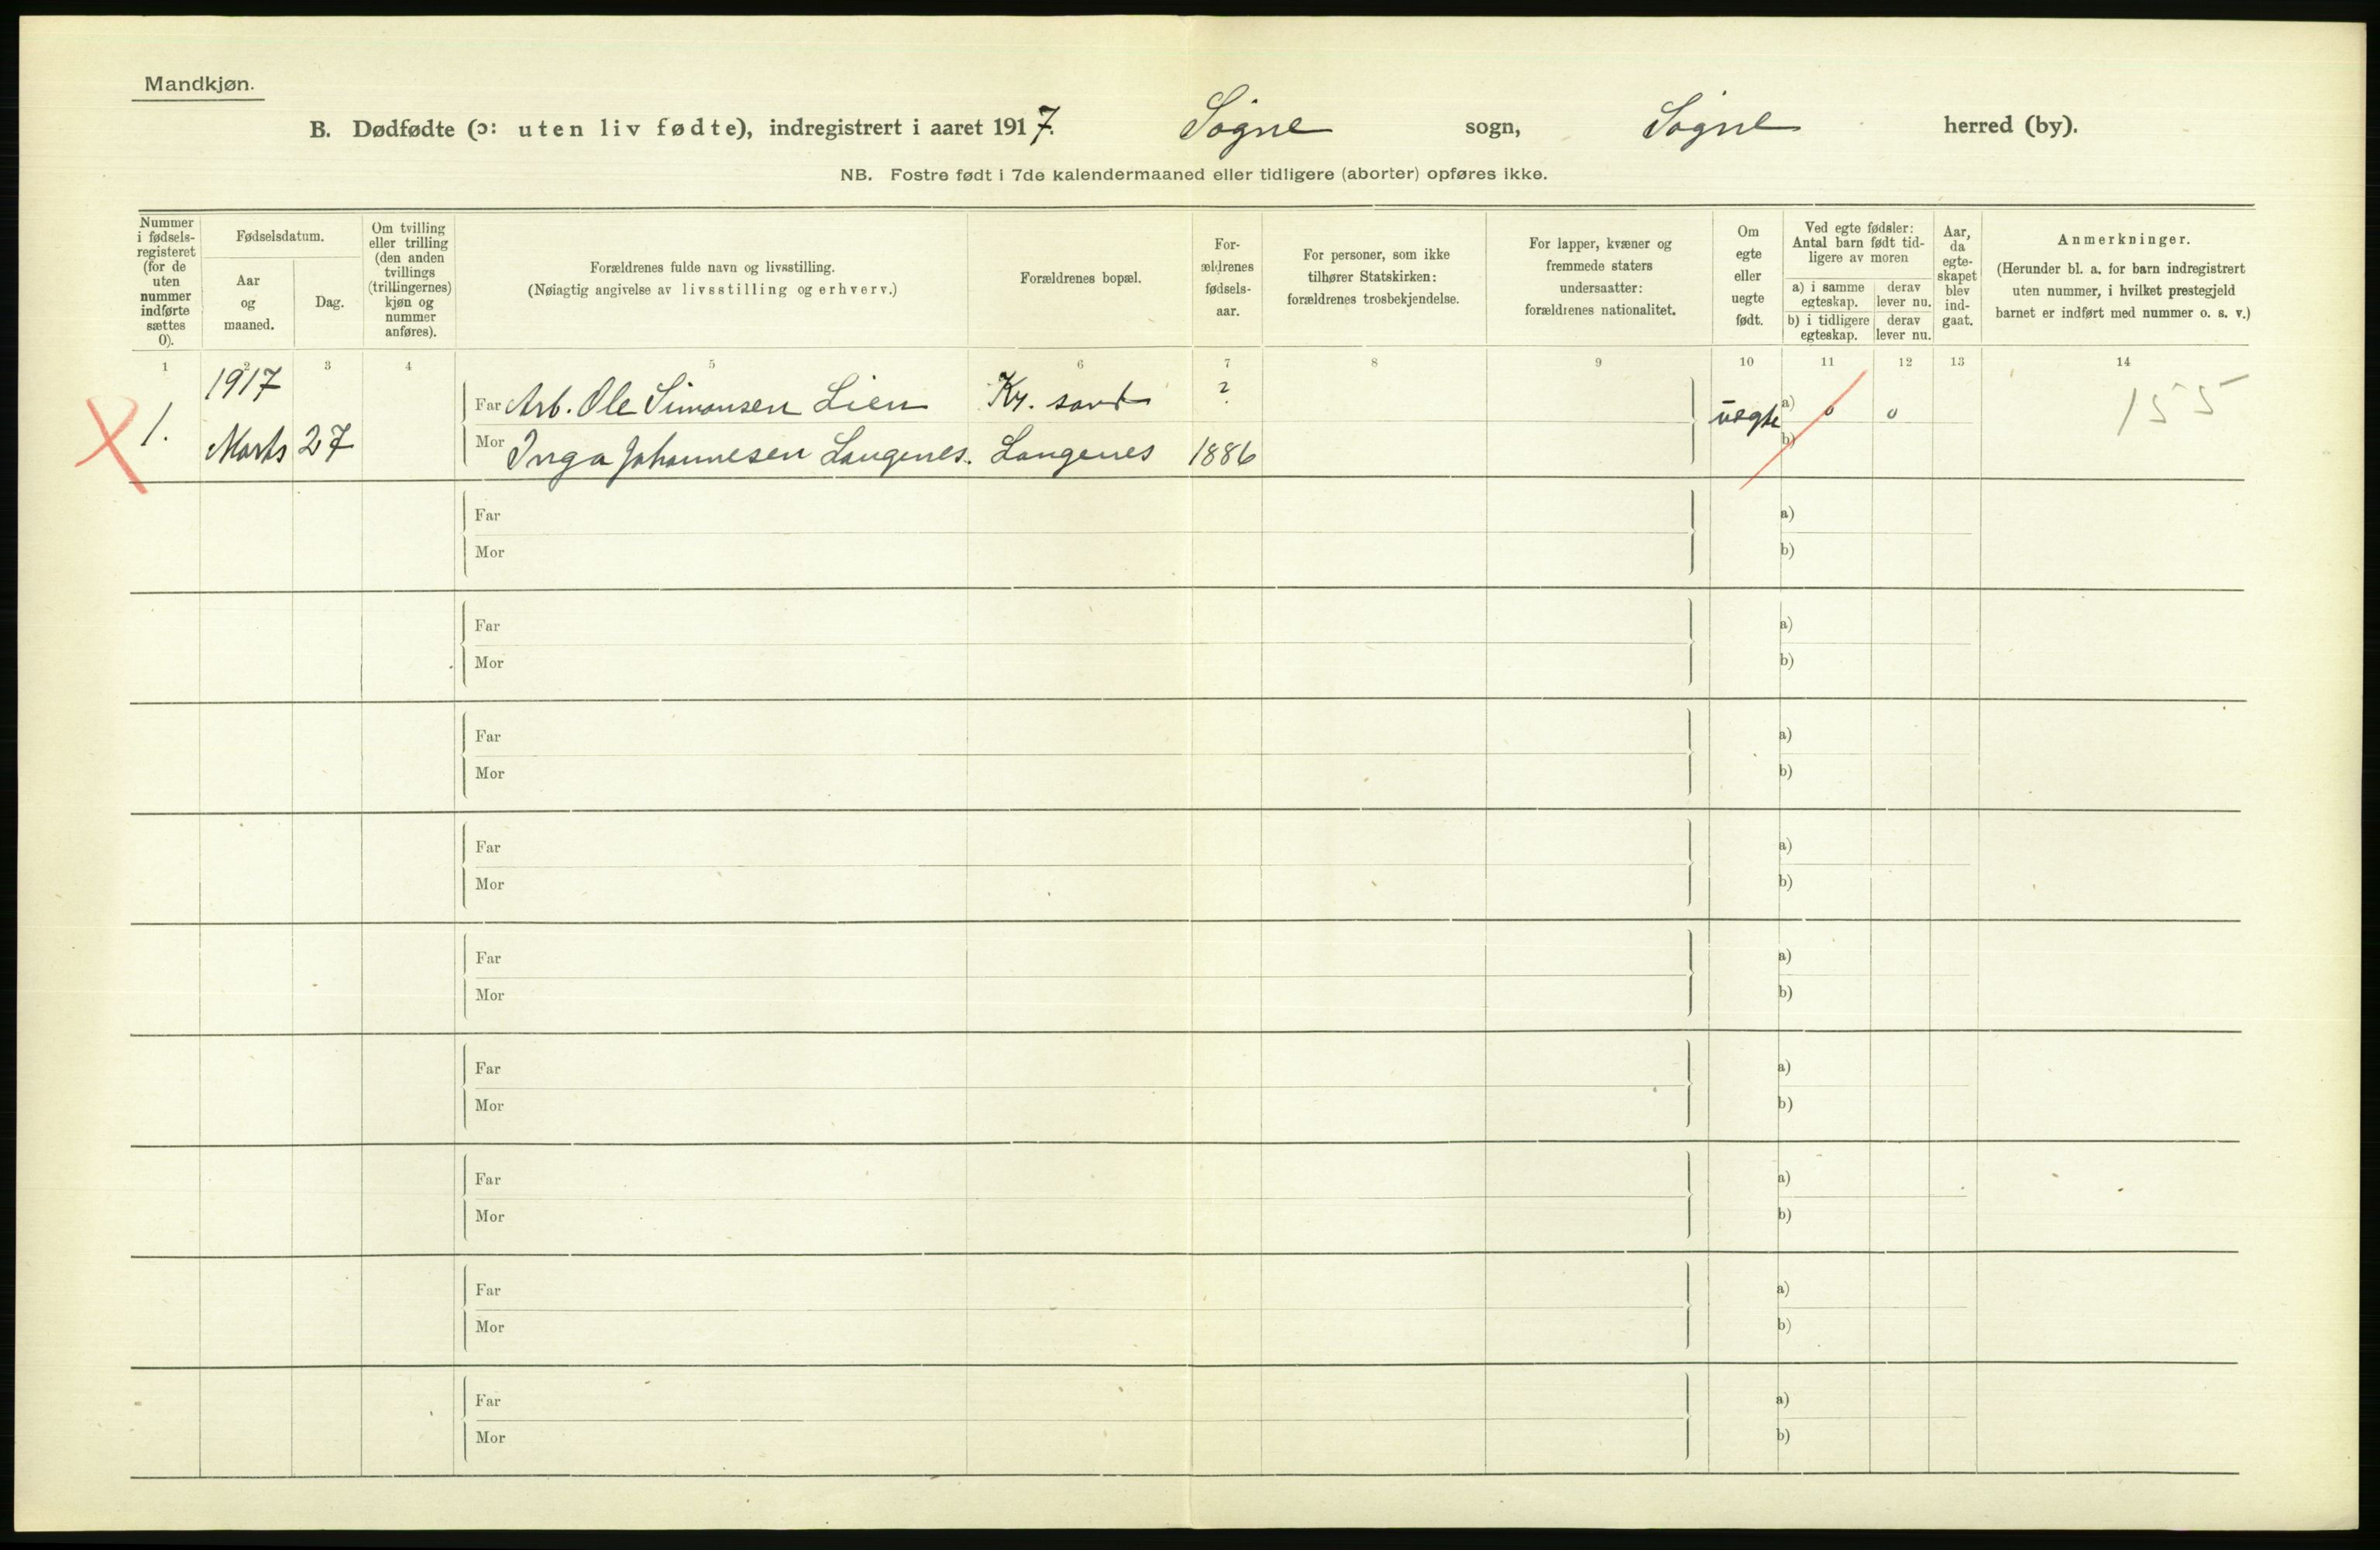 Mandkjøn.
B. Dødfødte (ɔ: uten liv fødte), indregistrert i aaret 1917. Søgne sogn, Søgne herred (by).
NB. Fostre født i 7de kalendermaaned eller tidligere (aborter) opføres ikke.
Nummer i fødsels-registeret (for de uten nummer indførte sættes 0).
Fødselsdatum.
Aar og maaned.
Dag.
Om tvilling eller trilling (den anden tvillings (trillingernes) kjøn og nummer anføres).
Forældrenes fulde navn og livsstilling.
(Nøiagtig angivelse av livsstilling og erhverv.)
Forældrenes bopæl.
For-ældrenes fødsels-aar.
For personer, som ikke tilhører Statskirken: forældrenes trosbekjendelse.
For lapper, kvæner og fremmede staters undersaatter: forældrenes nationalitet.
Om egte eller uegte født.
Ved egte fødsler: Antal barn født tid-ligere av moren
a) i samme egteskap.
derav lever nu.
b) i tidligere egteskap.
derav lever nu.
Aar, da egte-skapet blev ind-gaat.
Anmerkninger.
(Herunder bl. a. for barn indregistrert uten nummer, i hvilket prestegjeld barnet er indført med nummer o. s. v.)
1 2 3 4 5 6 7 8 9 10 11 12 13 14
1917
Far Arb. Ole Simonsen Lien Kr. sand ?
1. Marts 27 uegte a) 0 0 155
Mor Inga Johannesen Langenes. Langenes 1886 b)
Far a)
Mor b)
Far a)
Mor b)
Far a)
Mor b)
Far a)
Mor b)
Far a)
Mor b)
Far a)
Mor b)
Far a)
Mor b)
Far a)
Mor b)
Far a)
Mor b)